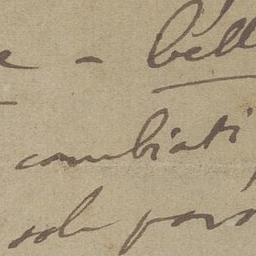 e - bell
cambiati,
sole paro